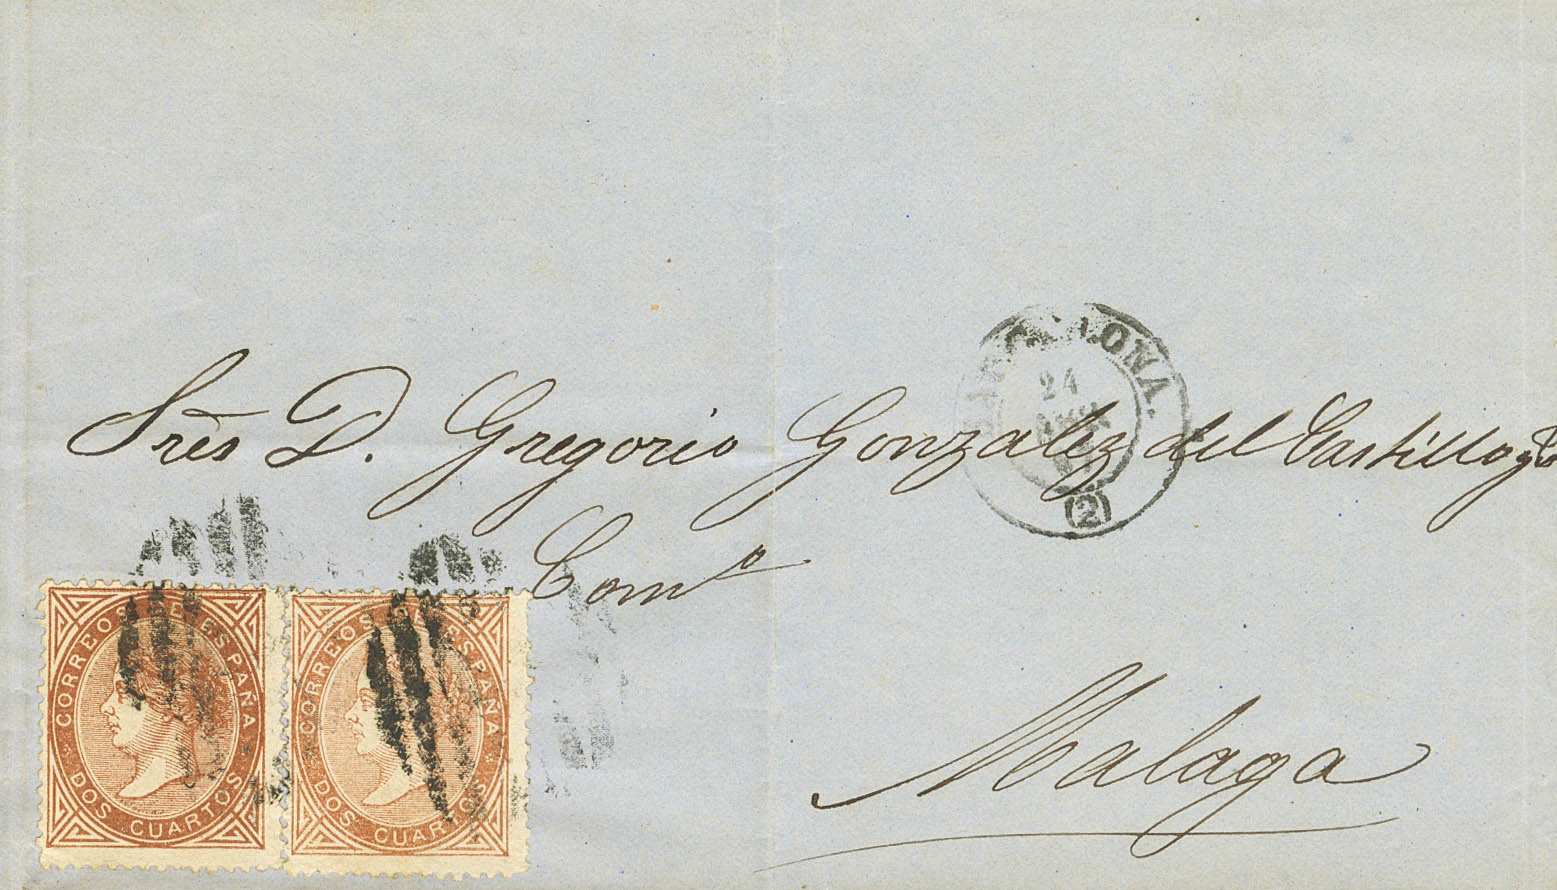 BARCELONA.
24
(2)
Sres D. Gregorio Gonzalez del Castillo y Ca
Como
Malaga
CORREOS DE ESPAÑA
DOS CUARTOS
CORREOS DE ESPAÑA
DOS CUARTOS